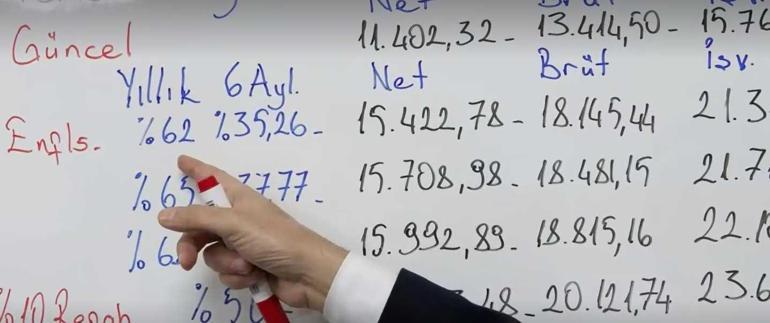 Net Brüt
Güncel 11.402,32- 13.414,50- 15.76
Yıllık 6 Ayl. Net Brüt İşv.
Enfls. %62 %35,26- 15.422,78- 18.145,44 21.3
%65 37,77- 15.708,98- 18.481,15 21.7
%6 15.992,89- 18.815,16
48- 20.121,74 23.6